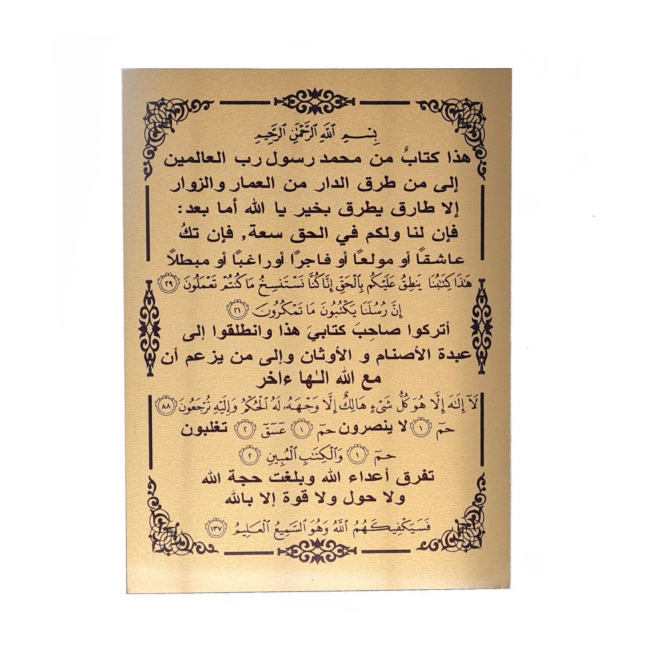 بِسْمِ ٱللَّهِ ٱلرَّحْمَٰنِ ٱلرَّحِيمِ
هذا كتابٌ من محمد رسول رب العالمين
إلى من طرق الدار من العمار والزوار
إلا طارق يطرق بخير يا الله أما بعد:
فإن لنا ولكم في الحق سعة, فإن تكُ
عاشقًا أو مولعًا أو فاجرًا أوراغبًا أو مبطلاً
هَٰذَا كِتَٰبُنَا يَنطِقُ عَلَيْكُم بِٱلْحَقِّ إِنَّا كُنَّا نَسْتَنسِخُ مَا كُنتُمْ تَعْمَلُونَ ٢٩
إِنَّ رُسُلَنَا يَكْتُبُونَ مَا تَمْكُرُونَ ٢١
أتركوا صاحِبَ كتابيَ هذا وانطلقوا إلى
عبدة الأصنام و الأوثان وإلى من يزعم أن
مع الله الٰها ءاخر
لَآ إِلَٰهَ إِلَّا هُوَ كُلُّ شَىْءٍ هَالِكٌ إِلَّا وَجْهَهُۥ لَهُ ٱلْحُكْمُ وَإِلَيْهِ تُرْجَعُونَ ٨٨
حمٓ ١ لا ينصرون حمٓ ١ عٓسٓقٓ ٢ تغلبون
حمٓ ١ وَٱلْكِتَٰبِ ٱلْمُبِينِ ٢
تفرق أعداء الله وبلغت حجة الله
ولا حول ولا قوة إلا بالله
فَسَيَكْفِيكَهُمُ ٱللَّهُ وَهُوَ ٱلسَّمِيعُ ٱلْعَلِيمُ ١٣٧